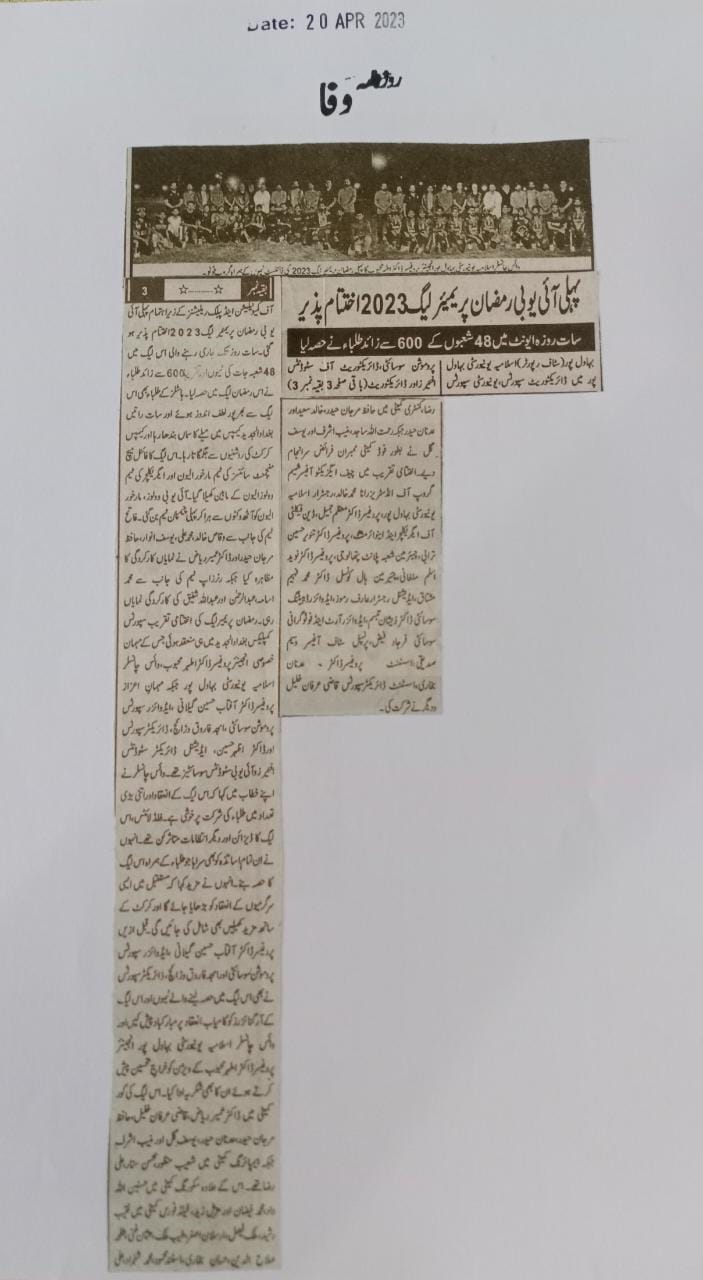 Date: 20 APR 2023
روزنامہ وفا
وائس چانسلر اسلامیہ یونیورسٹی بہاول پور انجینئر پروفیسر ڈاکٹر اطہر محبوب کا پہلی رمضان پریمیئر لیگ 2023 کی فائنلسٹ ٹیموں کے ہمراہ گروپ فوٹو۔
پہلی آئی یو بی رمضان پریمیئر لیگ 2023 اختتام پذیر
سات روزہ ایونٹ میں 48 شعبوں کے 600 سے زائد طلباء نے حصہ لیا
بہاول پور (سٹاف رپورٹر) اسلامیہ یونیورسٹی بہاول
پور میں ڈائریکٹوریٹ سپورٹس، یونیورسٹی سپورٹس
پروموشن سوسائٹی، ڈائریکٹوریٹ آف سٹوڈنٹس
افیئرز اور ڈائریکٹوریٹ (باقی صفحہ 3 بقیہ نمبر 3)
بقیہ نمبر ☆..........☆ 3
آف کمیونیکیشن اینڈ پبلک ریلیشنز کے زیر اہتمام پہلی آئی
یو بی رمضان پریمیئر لیگ 2023 اختتام پذیر ہو
گئی۔ سات روز تک جاری رہنے والی اس لیگ میں
48 شعبہ جات کی ٹیموں اور 600 سے زائد طلباء
نے اس رمضان لیگ میں حصہ لیا۔ ہاسٹلز کے طلباء بھی اس
لیگ سے بھرپور لطف اندوز ہوئے اور سات راتیں
بغداد الجدید کیمپس میں میلے کا سماں بندھا رہا اور کیمپس
کرکٹ کی روشنیوں سے جگمگاتا رہا۔ اس لیگ کا فائنل میچ
مینجمنٹ سائنسز کی ٹیم مارخور الیون اور ایگریکلچر کی ٹیم
وولوز الیون کے مابین کھیلا گیا۔ آئی یو بی وولوز، مارخور
الیون کو آٹھ وکٹوں سے ہرا کر پہلی چیمپئن ٹیم بن گئی۔ فاتح
ٹیم کی جانب سے وقاص خالد، محمد علی، یوسف انوار، حافظ
مرجان حیدر اور ڈاکٹر عمیر ریاض نے نمایاں کارکردگی کا
مظاہرہ کیا جبکہ رنرز اپ ٹیم کی جانب سے محمد
اسامہ، عبدالرحمٰن اور عبداللہ شفیق کی کارکردگی نمایاں
رہی۔ رمضان پریمیر لیگ کی اختتامی تقریب سپورٹس
کمپلیکس بغداد الجدید میں ہی منعقد ہوئی جس کے مہمان
خصوصی انجینئر پروفیسر ڈاکٹر اطہر محبوب، وائس چانسلر
اسلامیہ یونیورسٹی بہاول پور جبکہ مہمان اعزاز
پروفیسر ڈاکٹر آفتاب حسین گیلانی، ایڈوائزر سپورٹس
پروموشن سوسائٹی، امجد فاروق وڑائچ، ڈائریکٹر سپورٹس
اور ڈاکٹر اظہر حسین، ایڈیشنل ڈائریکٹر سٹوڈنٹس
افیئرز و آئی یو بی سٹوڈنٹس سوسائٹیز تھے۔ وائس چانسلر نے
اپنے خطاب میں کہا کہ اس لیگ کے انعقاد اور اتنی بڑی
تعداد میں طلباء کی شرکت پر خوشی ہے۔ فلڈ لائٹس، اس
لیگ کا ڈیزائن اور دیگر انتظامات متاثر کن تھے۔ انہوں
نے ان تمام اساتذہ کو بھی سراہا جو طلباء کے ہمراہ اس لیگ
کا حصہ بنے۔ انہوں نے مزید کہا کہ مستقبل میں ایسی
سرگرمیوں کے انعقاد کو بڑھایا جائے گا اور کرکٹ کے
ساتھ مزید کھیلیں بھی شامل کی جائیں گی۔ قبل ازیں
پروفیسر ڈاکٹر آفتاب حسین گیلانی، ایڈوائزر سپورٹس
پروموشن سوسائٹی اور امجد فاروق وڑائچ، ڈائریکٹر سپورٹس
نے بھی اس لیگ میں حصہ لینے والے ٹیموں اور اس لیگ
کے آرگنائزرز کو کامیاب انعقاد پر مبارکباد پیش کیں اور
وائس چانسلر اسلامیہ یونیورسٹی بہاول پور انجینئر
پروفیسر ڈاکٹر اطہر محبوب کے ویژن کو خراج تحسین پیش
کرتے ہوئے ان کا بھی شکریہ ادا کیا۔ اس لیگ کی کور
کمیٹی میں ڈاکٹر عمیر ریاض، قاضی عرفان خلیل، حافظ
مرجان حیدر، عدنان حیدر، یوسف گل اور منیب اشرف
جبکہ ایمپائرنگ کمیٹی میں شعیب منظور، محسن ستار، علی
رضا تھے۔ اس کے علاوہ سکورنگ کمیٹی میں حسنین اللہ
داد، محمد فیضان اور زید، فیلڈ فورس کمیٹی میں
رشید، ملک فیصل، ارسلان اصغر، طیب ملک،
صلاح الدین، حسان بخاری، محمد شہزاد، علی
رضا، کمنٹری کمیٹی میں حافظ مرجان حیدر، خالد سعید اور
عدنان حیدر جبکہ رحمت اللہ ساجد، منیب اشرف اور یوسف
گل نے بطور فوڈ کمیٹی ممبران فرائض سرانجام
دیے۔ اختتامی تقریب میں چیف ایگزیکٹو آفیسر شمیم
گروپ آف انڈسٹریز رانا محمد خالد، رجسٹرار اسلامیہ
یونیورسٹی بہاول پور، پروفیسر ڈاکٹر معظم جمیل، ڈین فیکلٹی
آف ایگریکلچر اینڈ انوائرمنٹ، پروفیسر ڈاکٹر تنویر حسین
ترابی، چیئرمین شعبہ پلانٹ پتھالوجی، پروفیسر ڈاکٹر نوید
اسلم ملغانی، چیئرمین ہال کونسل ڈاکٹر محمد فہیم
مشتاق، ایڈیشنل رجسٹرار عارف رموز، ایڈوائزر ڈیبیٹنگ
سوسائٹی ڈاکٹر ذیشان تبسم، ایڈوائزر آرٹ اینڈ فوٹوگرافی
سوسائٹی فرجاد فیض، پرنسپل سٹاف آفیسر وسیم
صدیقی، اسسٹنٹ پروفیسر ڈاکٹر۔ عدنان
بخاری، اسسٹنٹ ڈائریکٹر سپورٹس قاضی عرفان خلیل
و دیگر نے شرکت کی۔